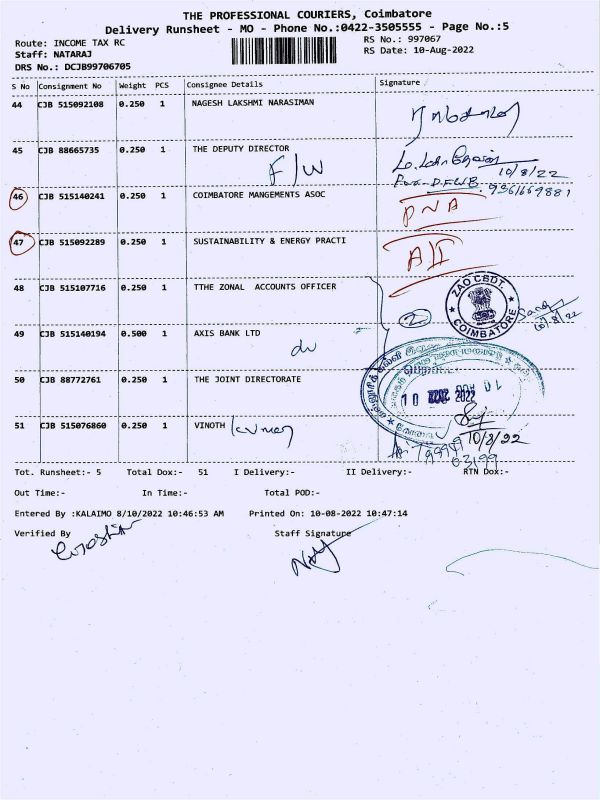 THE PROFESSIONAL COURIERS, Coimbatore
Delivery Runsheet - MO - Phone No.:0422-3505555 - Page No.:5
Route: INCOME TAX RC RS No.: 997067
Staff: NATARAJ RS Date: 10-Aug-2022
DRS No.: DCJB99706705
S No Consignment No Weight PCS Consignee Details Signature
44 CJB 515092108 0.250 1 NAGESH LAKSHMI NARASIMAN
45 CJB 88665735 0.250 1 THE DEPUTY DIRECTOR
F/W 10/8/22
46 CJB 515140241 0.250 1 COIMBATORE MANGEMENTS ASOC
PNA
47 CJB 515092289 0.250 1 SUSTAINABILITY & ENERGY PRACTI
48 CJB 515107716 0.250 1 TTHE ZONAL ACCOUNTS OFFICER
ZAO CBDT. COIMBATORE
2
10/8/22
49 CJB 515140194 0.500 1 AXIS BANK LTD
50 CJB 88772761 0.250 1 THE JOINT DIRECTORATE
10 2022
51 CJB 515076860 0.250 1 VINOTH
10/8/22
Tot. Runsheet:- 5 Total Dox:- 51 I Delivery:- II Delivery:- RTN Dox:-
Out Time:- In Time:- Total POD:-
Entered By :KALAIMO 8/10/2022 10:46:53 AM Printed On: 10-08-2022 10:47:14
Verified By Staff Signature